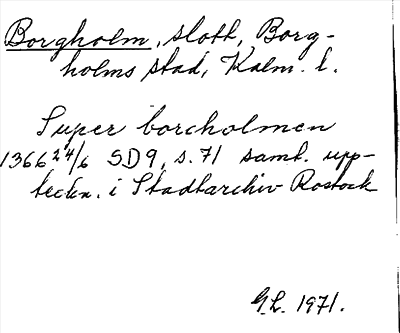 Borgholm, slott, Borg-
holms stad, Kalm. l.
Super borcholmen
1366 24/6 SD9, s. 71 samt. upp-
teckn. i Stadtarchiv Rostock
G.L. 1971.